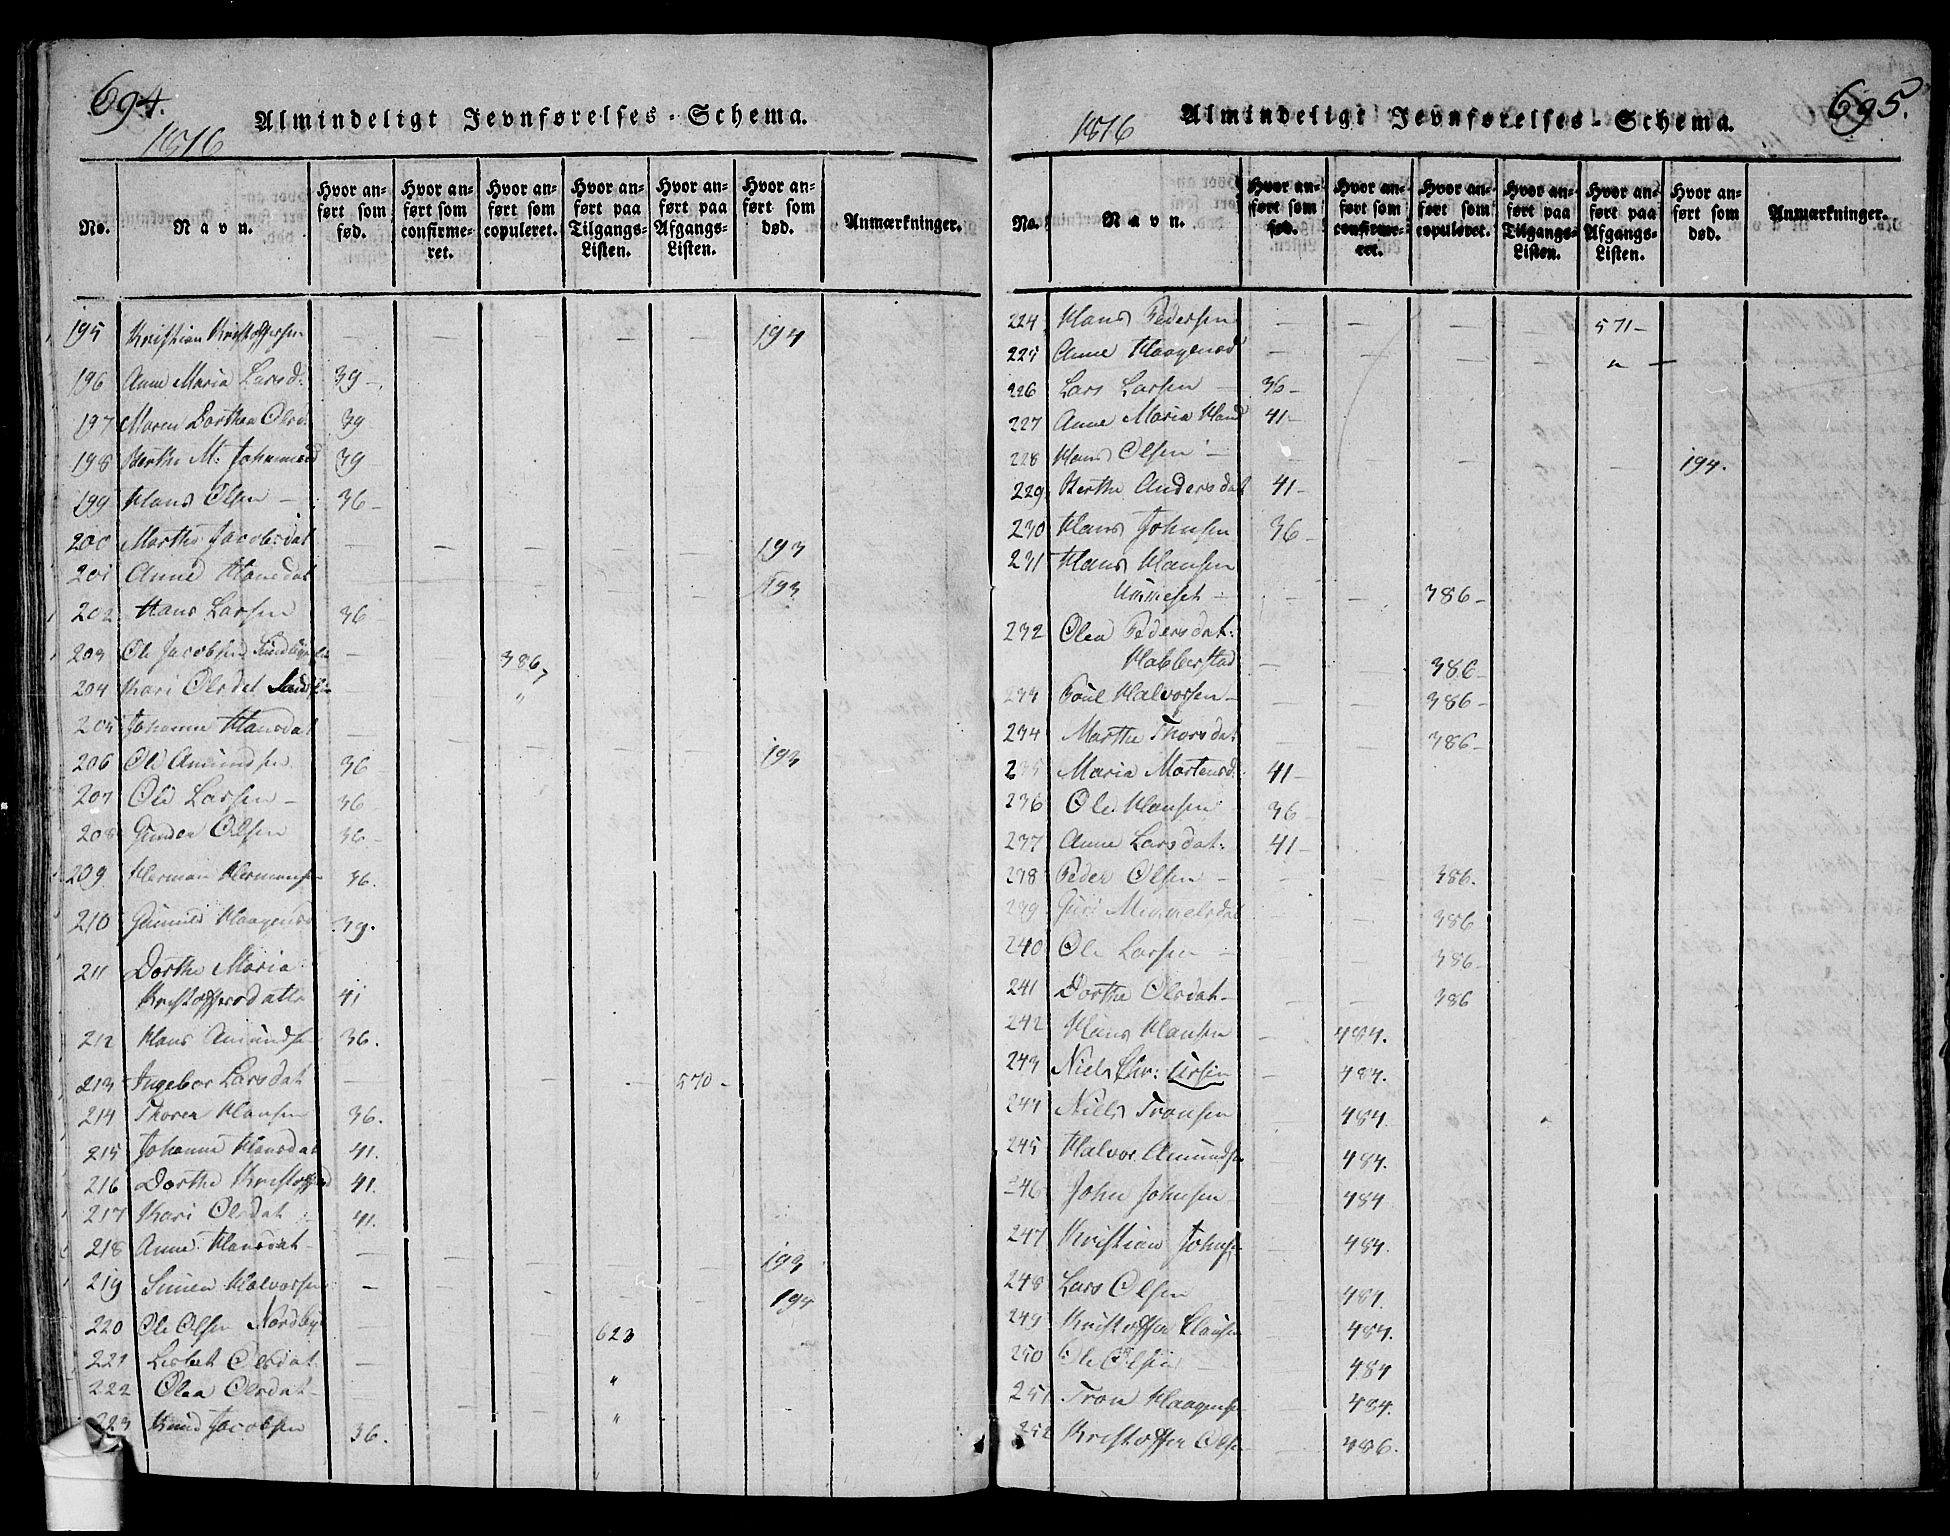 694.
Almindeligt Jevnførelses-Schema.
1816
No.
Navn.
Hvor anført som fød.
Hvor anført som confirmeret.
Hvor anført som copuleret.
Hvor anført paa Tilgangs-Listen.
Hvor anført paa Afgangs-Listen.
Hvor anført som død.
Anmærkninger.
195 Kristian Kristoffersen — — — — — 194
196 Anne Maria Larsd: 39 —
197 Maren Dorthea Olsd. 39
198 Berthe M: Johannesd 39
199 Hans Olsen — 36 —
200 Marthe Jacobsdat — — — — — 193
201 Anne Hansdat — — — — — 193
202 Hans Larsen 36 —
203 Ole Jacobsen — — 386,
204 Kari Olsdat — — "
205 Johanne Hansdat — — — — — 193
206 Ole Amundsen 36 —
207 Ole Larsen — 36
208 Gunder Olsen 36 —
209 Herman Hermansen 36.
210 Gunnild Haagensd 39.
211 Dorthe Maria
Kristoffersdatter 41
212 Hans Amundsen 36.
213 Ingebor Larsdat — — — — 570 —
214 Thorer Hansen 36.
215 Johanne Hansdat 41.
216 Dorthe Kristoffersd 41.
217 Kari Olsdat 41.
218 Anne Hansdat — — — — — — 193
219 Simen Halvorsen — — — — — 194
220 Ole Olsen Nordby — — — 623
221 Lisbet Olsdat — — — "
222 Olea Olsdat — — — — "
223 Knud Jacobsen 36.
695.
Almindeligt Jevnførelses-Schema.
1816
No.
Navn.
Hvor anført som fød.
Hvor anført som confirmeret.
Hvor anført som copuleret.
Hvor anført paa Tilgangs-Listen.
Hvor anført paa Afgangs-Listen.
Hvor anført som død.
Anmærkninger.
224 Hans Pedersen — — — — 571 —
225 Anne Haagensd — — — — " —
226 Lars Larsen — 36 —
227 Anne Maria Hansd 41 —
228 Hans Olsen — — — — — — 194.
229 Berthe Andersdat 41 —
230 Hans Johnsen 36 —
231 Hans Hansen
— — — 386 —
232 Olea Pedersdat:
Habberstad — — 386 —
233 Poul Halvorsen — — — 386 —
234 Marthe Thorsdat — — 386 —
235 Maria Mortensd: 41 —
236 Ole Hansen — 36 —
237 Anne Larsdat: 41 —
238 Peder Olsen — — — 386.
239 Guri Mimmelsdat — — 386
240 Ole Larsen — — — 386 —
241 Dorthe Olsdat — — — 386
242 Hans Hansen — 484.
243 Niels Chr: Ursin — 484.
244 Niels Tronsen — 484.
245 Halvor Amundsen — 484.
246 John Johnsen — 484.
247 Kristian Johnsen — 484.
248 Lars Olsen — 484.
249 Kristoffer Clausen — 484.
250 Ole Olsen — — 484
251 Tron Haagensen — 484.
252 Kristoffer Olsen — 486.